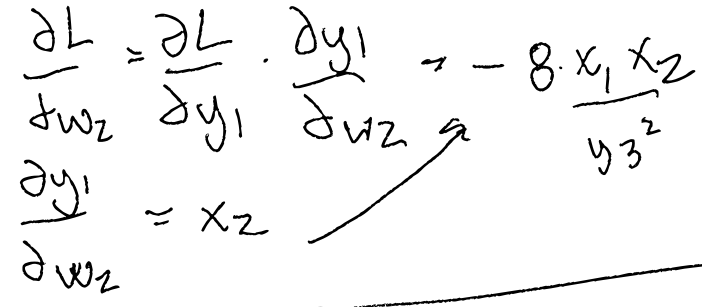 ∂L/∂w₂ = ∂L/∂y₁ · ∂y₁/∂w₂ = - 8·x₁ x₂/y₃²
∂y₁/∂w₂ = x₂